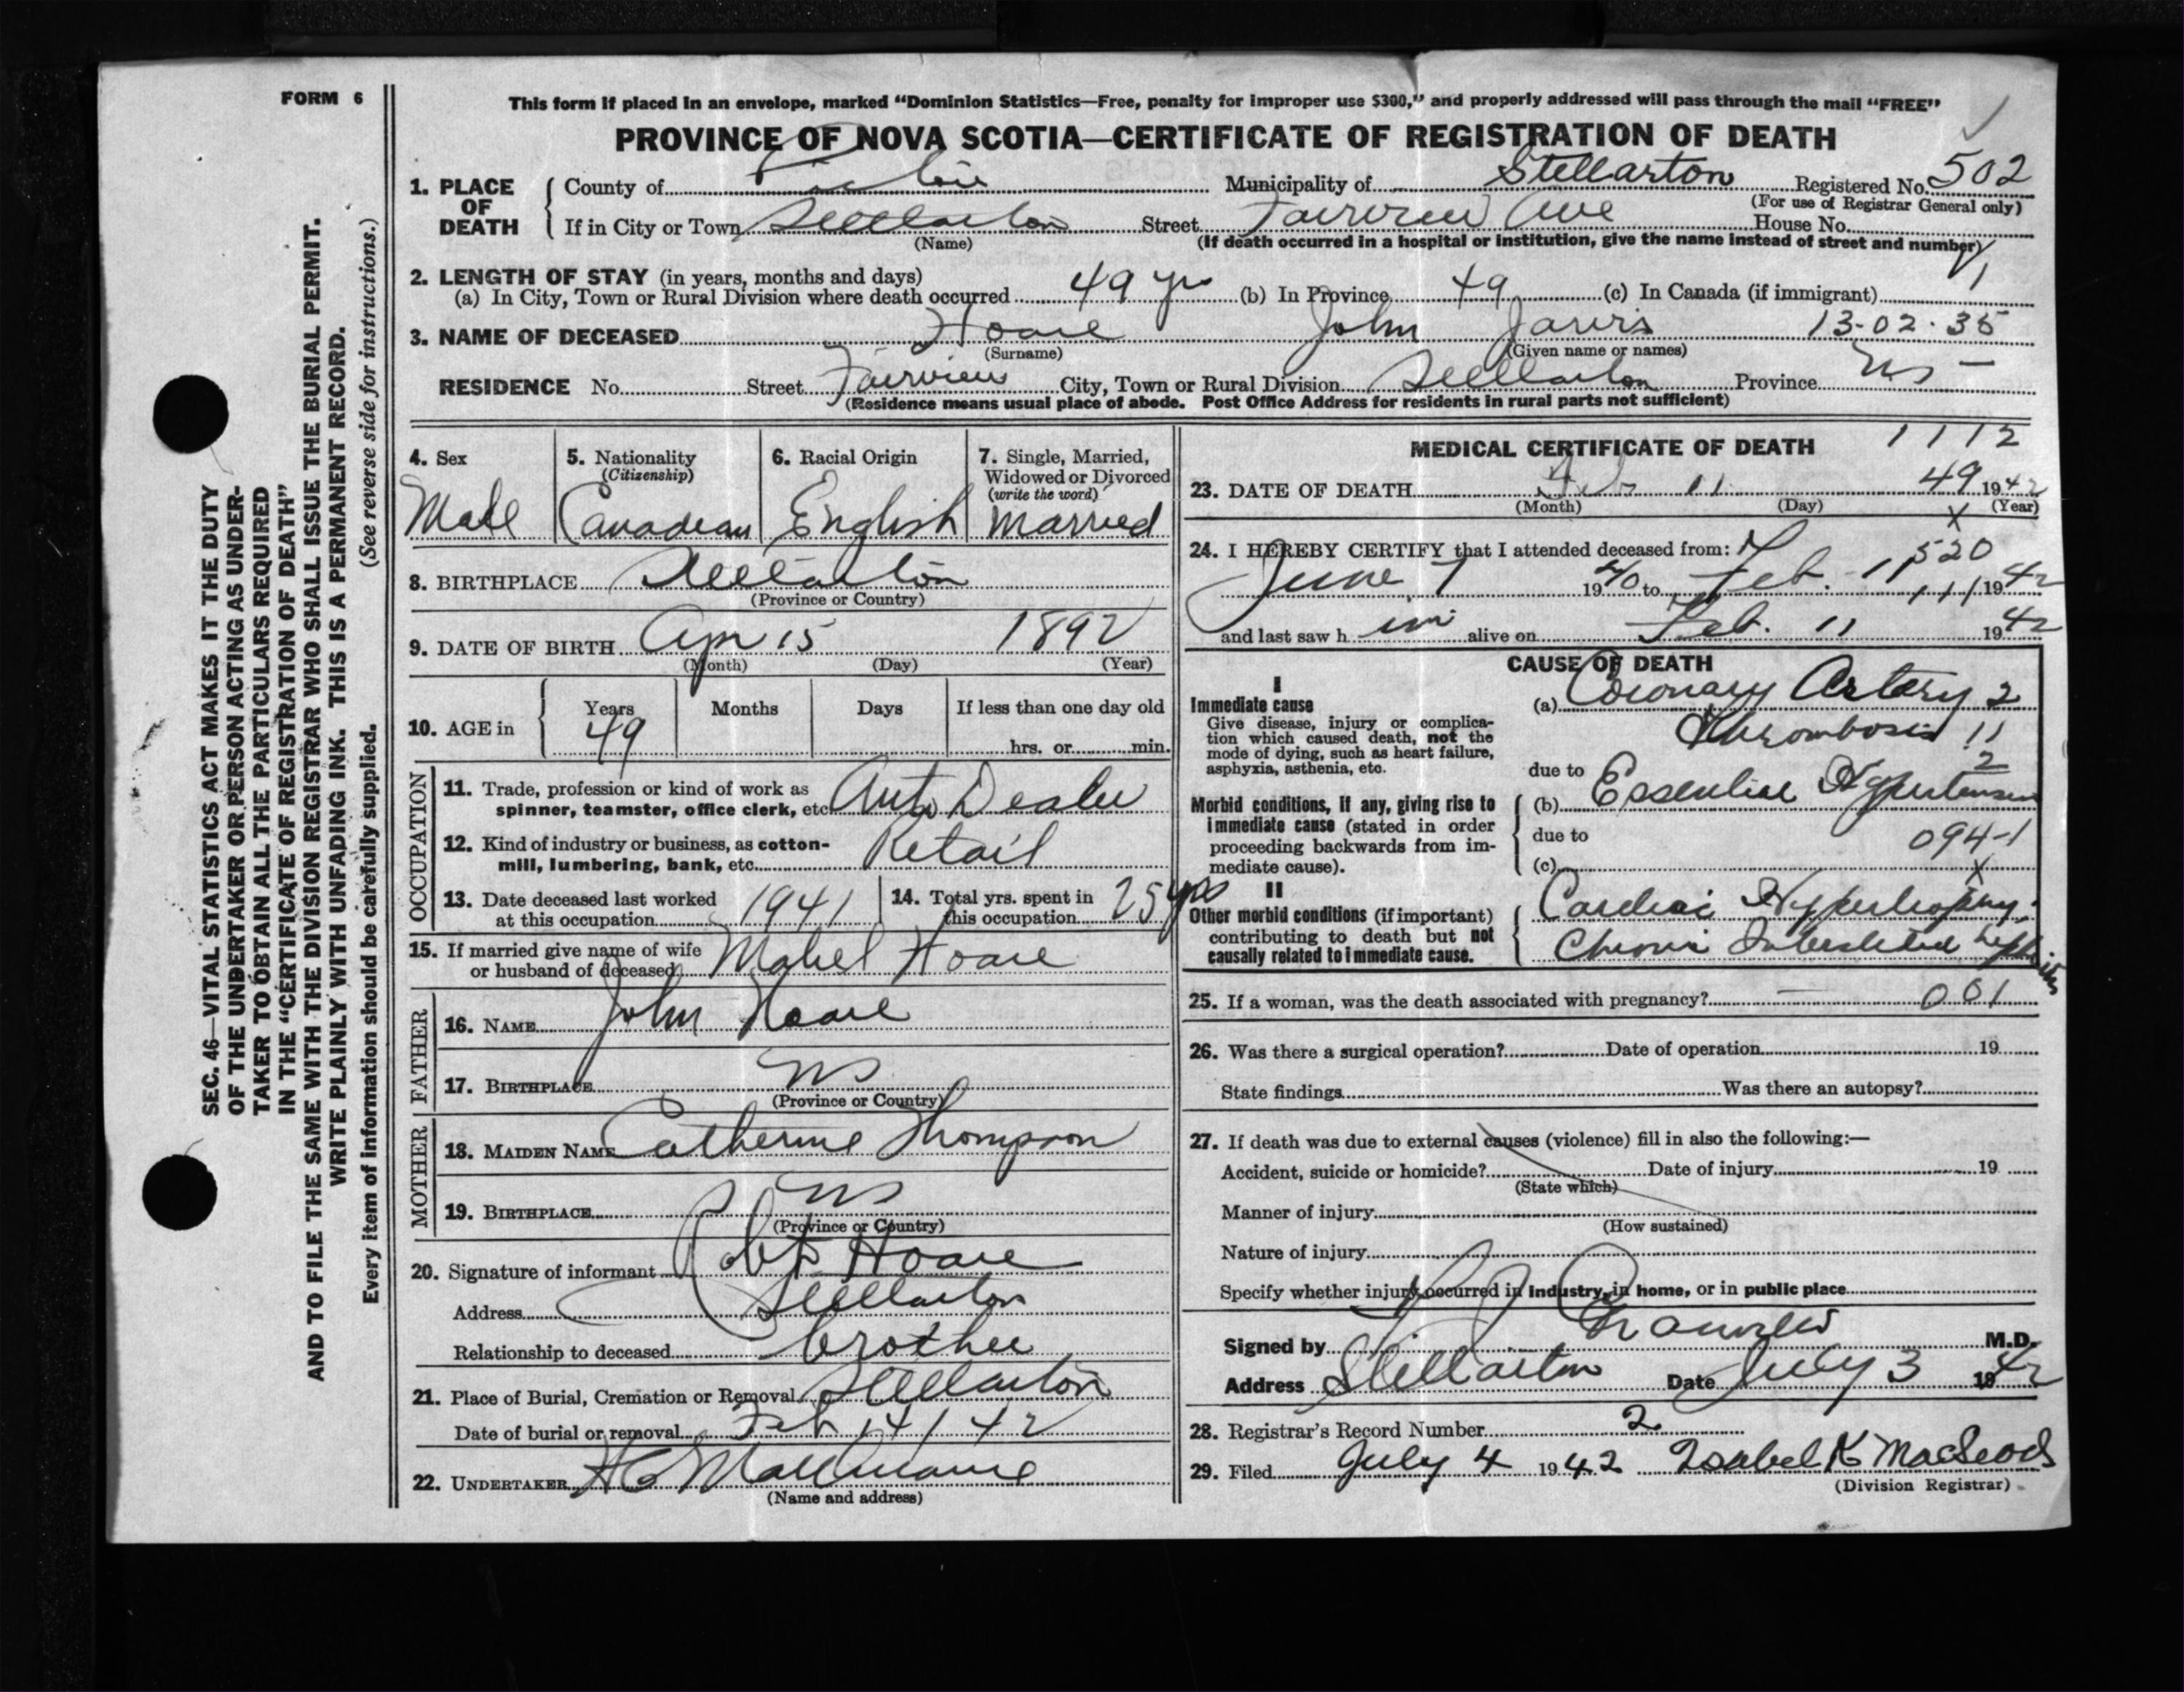 FORM 6
This form if placed in an envelope, marked “Dominion Statistics—Free, penalty for improper use $300,” and properly addressed will pass through the mail “FREE”
PROVINCE OF NOVA SCOTIA—CERTIFICATE OF REGISTRATION OF DEATH
1. PLACE OF DEATH
County of Pictou Municipality of Stellarton Registered No. 502
(For use of Registrar General only)
If in City or Town Stellarton Street Fairview Ave House No.
(Name) (If death occurred in a hospital or institution, give the name instead of street and number)
2. LENGTH OF STAY (in years, months and days)
(a) In City, Town or Rural Division where death occurred 49 yrs (b) In Province 49 (c) In Canada (if immigrant) 1
3. NAME OF DECEASED Hoare John Jarvis 13-02-35
(Surname) (Given name or names)
RESIDENCE No. Street Fairview City, Town or Rural Division Stellarton Province NS
(Residence means usual place of abode. Post Office Address for residents in rural parts not sufficient)
4. Sex
Male
5. Nationality
(Citizenship)
Canadian
6. Racial Origin
English
7. Single, Married,
Widowed or Divorced
(write the word)
Married
8. BIRTHPLACE Stellarton
(Province or Country)
9. DATE OF BIRTH Apr 15 1892
(Month) (Day) (Year)
10. AGE in
Years Months Days If less than one day old
49
hrs. or min.
OCCUPATION
11. Trade, profession or kind of work as
spinner, teamster, office clerk, etc. Auto Dealer
12. Kind of industry or business, as cotton-
mill, lumbering, bank, etc. Retail
13. Date deceased last worked
at this occupation 1941
14. Total yrs. spent in
this occupation 25 yrs
15. If married give name of wife
or husband of deceased Mabel Hoare
FATHER
16. NAME John Hoare
17. BIRTHPLACE NS
(Province or Country)
MOTHER
18. MAIDEN NAME Catherine Thompson
19. BIRTHPLACE NS
(Province or Country)
20. Signature of informant Robt Hoare
Address Stellarton
Relationship to deceased brother
21. Place of Burial, Cremation or Removal Stellarton
Date of burial or removal Feb 14/42
22. UNDERTAKER
(Name and address)
MEDICAL CERTIFICATE OF DEATH 1112
23. DATE OF DEATH Feb 11 49 1942
(Month) (Day) (Year)
X
24. I HEREBY CERTIFY that I attended deceased from:
520
June 7 1940 to Feb. 11 1942
111
and last saw him alive on Feb. 11 1942
CAUSE OF DEATH
I
Immediate cause
Give disease, injury or complica-
tion which caused death, not the
mode of dying, such as heart failure,
asphyxia, asthenia, etc.
(a) Coronary Artery 2
Thrombosis 11
2
due to
Morbid conditions, if any, giving rise to
immediate cause (stated in order
proceeding backwards from im-
mediate cause).
(b) Essential Hypertension
due to
094-1
(c)
X
II
Other morbid conditions (if important)
contributing to death but not
causally related to immediate cause.
Cardiac Hypertrophy;
Chronic Interstitial Nephritis
25. If a woman, was the death associated with pregnancy? — 001
26. Was there a surgical operation? Date of operation 19
State findings Was there an autopsy?
27. If death was due to external causes (violence) fill in also the following:—
Accident, suicide or homicide? Date of injury 19
(State which)
Manner of injury
(How sustained)
Nature of injury
Specify whether injury occurred in industry, in home, or in public place
Signed by M.D.
Address Stellarton Date July 3 1942
28. Registrar's Record Number 2
29. Filed July 4 1942 Isabel K MacLeod
(Division Registrar)
SEC. 46—VITAL STATISTICS ACT MAKES IT THE DUTY
OF THE UNDERTAKER OR PERSON ACTING AS UNDER-
TAKER TO OBTAIN ALL THE PARTICULARS REQUIRED
IN THE “CERTIFICATE OF REGISTRATION OF DEATH”
AND TO FILE THE SAME WITH THE DIVISION REGISTRAR WHO SHALL ISSUE THE BURIAL PERMIT.
WRITE PLAINLY WITH UNFADING INK. THIS IS A PERMANENT RECORD.
Every item of information should be carefully supplied. (See reverse side for instructions.)